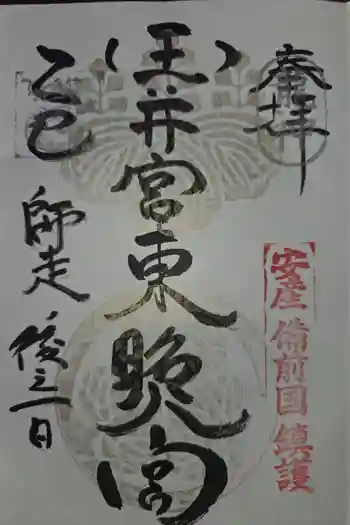 奉拝
安産 備前国 鎮護
(玉井宮東照宮)
乙巳
師走
後之一日